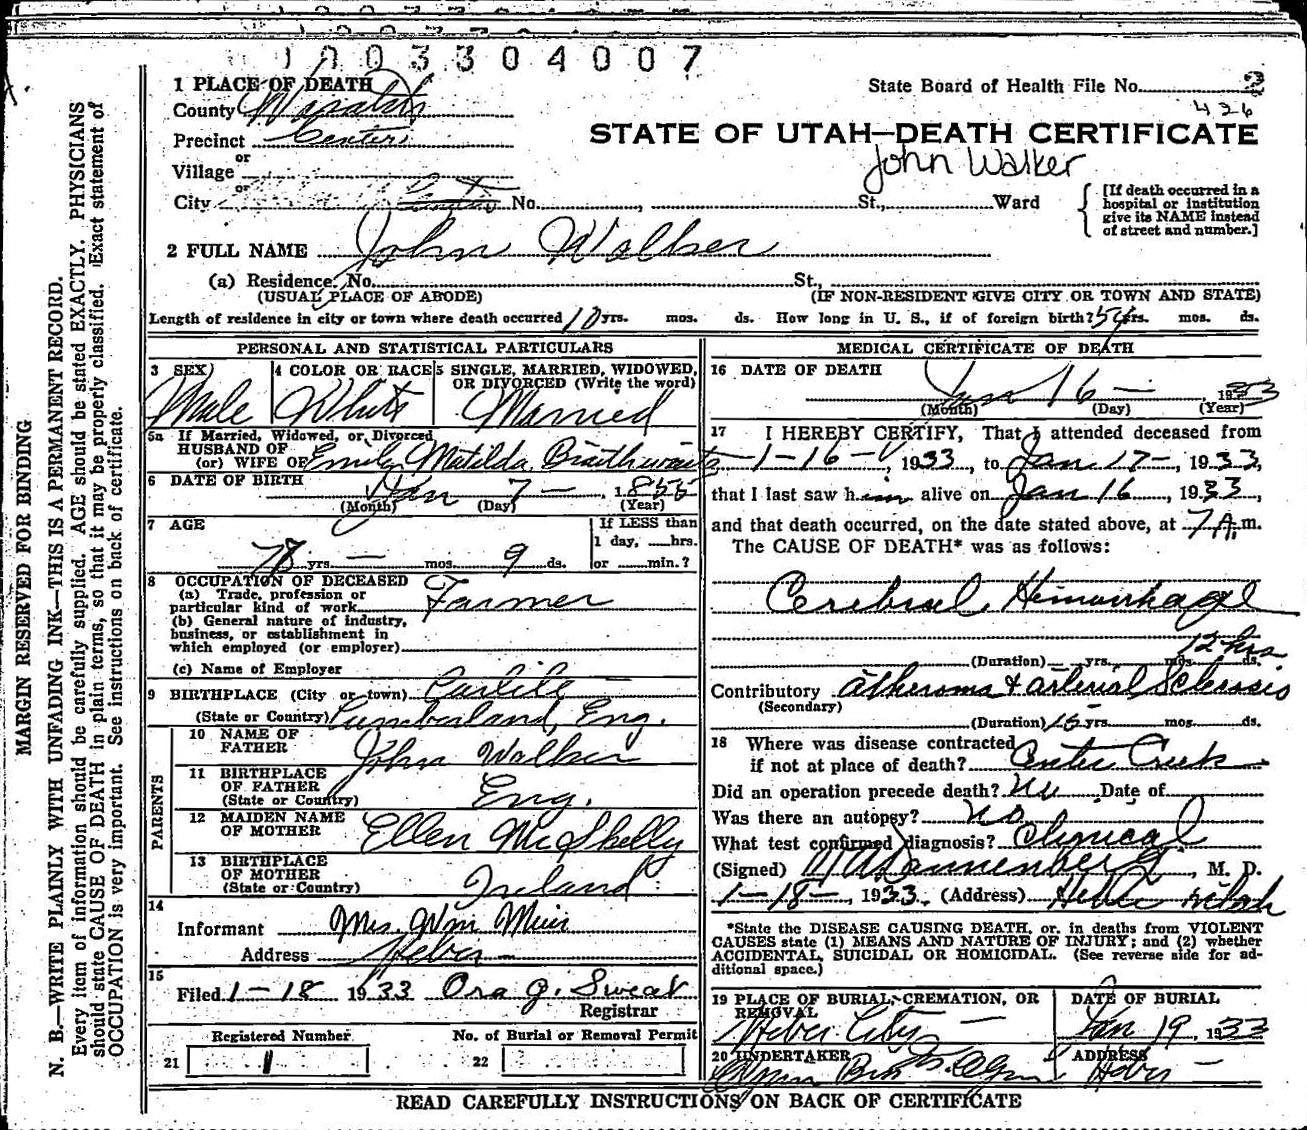 1003304007
1 PLACE OF DEATH
State Board of Health File No. 2
County Wasatch
426
Precinct Center
STATE OF UTAH—DEATH CERTIFICATE
or
Village
John Walker
or
City No. , St., Ward
[If death occurred in a
hospital or institution
give its NAME instead
of street and number.]
2 FULL NAME John Walker
(a) Residence. No. St.,
(USUAL PLACE OF ABODE) (IF NON-RESIDENT GIVE CITY OR TOWN AND STATE)
Length of residence in city or town where death occurred 10 yrs. mos. ds. How long in U. S., if of foreign birth? 54 yrs. mos. ds.
PERSONAL AND STATISTICAL PARTICULARS
3 SEX
Male
4 COLOR OR RACE
White
5 SINGLE, MARRIED, WIDOWED,
OR DIVORCED (Write the word)
Married
5a If Married, Widowed, or Divorced
HUSBAND OF
(or) WIFE OF Emily Matilda Braithwaite
6 DATE OF BIRTH
Jan 7 — , 1855
(Month) (Day) (Year)
7 AGE
78 yrs. — mos. 9 ds.
If LESS than
1 day, hrs.
or min.?
8 OCCUPATION OF DECEASED
(a) Trade, profession or
particular kind of work Farmer
(b) General nature of industry,
business, or establishment in
which employed (or employer)
(c) Name of Employer
9 BIRTHPLACE (City or town) Carlile —
(State or Country) Cumberland, Eng.
PARENTS
10 NAME OF
FATHER John Walker
11 BIRTHPLACE
OF FATHER
(State or Country) Eng.
12 MAIDEN NAME
OF MOTHER Ellen McSkelly
13 BIRTHPLACE
OF MOTHER
(State or Country) Ireland
14
Informant Mrs. Wm Muir
Address Heber —
15
Filed 1-18 1933 Ora J. Sweat
Registrar
Registered Number No. of Burial or Removal Permit
21 1 22
MEDICAL CERTIFICATE OF DEATH
16 DATE OF DEATH
Jan 16 — , 1933
(Month) (Day) (Year)
17 I HEREBY CERTIFY, That I attended deceased from
1-16- , 1933, to Jan 17-, 1933,
that I last saw him alive on Jan 16, 1933,
and that death occurred, on the date stated above, at 7 A. m.
The CAUSE OF DEATH* was as follows:
Cerebral Himorrhage
12 hrs
(Duration) yrs. mos. ds.
Contributory Atheroma & arterial Sclerosis
(Secondary)
(Duration) 15 yrs. mos. ds.
18 Where was disease contracted
if not at place of death? Center Creek
Did an operation precede death? No Date of
Was there an autopsy? No
What test confirmed diagnosis? Clinical
(Signed) Dannenberg, M. D.
1-18-, 1933. (Address) Heber Utah
*State the DISEASE CAUSING DEATH, or, in deaths from VIOLENT
CAUSES state (1) MEANS AND NATURE OF INJURY; and (2) whether
ACCIDENTAL, SUICIDAL OR HOMICIDAL. (See reverse side for ad-
ditional space.)
19 PLACE OF BURIAL, CREMATION, OR
REMOVAL
Heber City —
DATE OF BURIAL
Jan 19, 1933
20 UNDERTAKER
ADDRESS
Heber —
READ CAREFULLY INSTRUCTIONS ON BACK OF CERTIFICATE
MARGIN RESERVED FOR BINDING
N. B.—WRITE PLAINLY WITH UNFADING INK—THIS IS A PERMANENT RECORD.
Every item of information should be carefully supplied. AGE should be stated EXACTLY. PHYSICIANS
should state CAUSE OF DEATH in plain terms, so that it may be properly classified. Exact statement of
OCCUPATION is very important. See instructions on back of certificate.